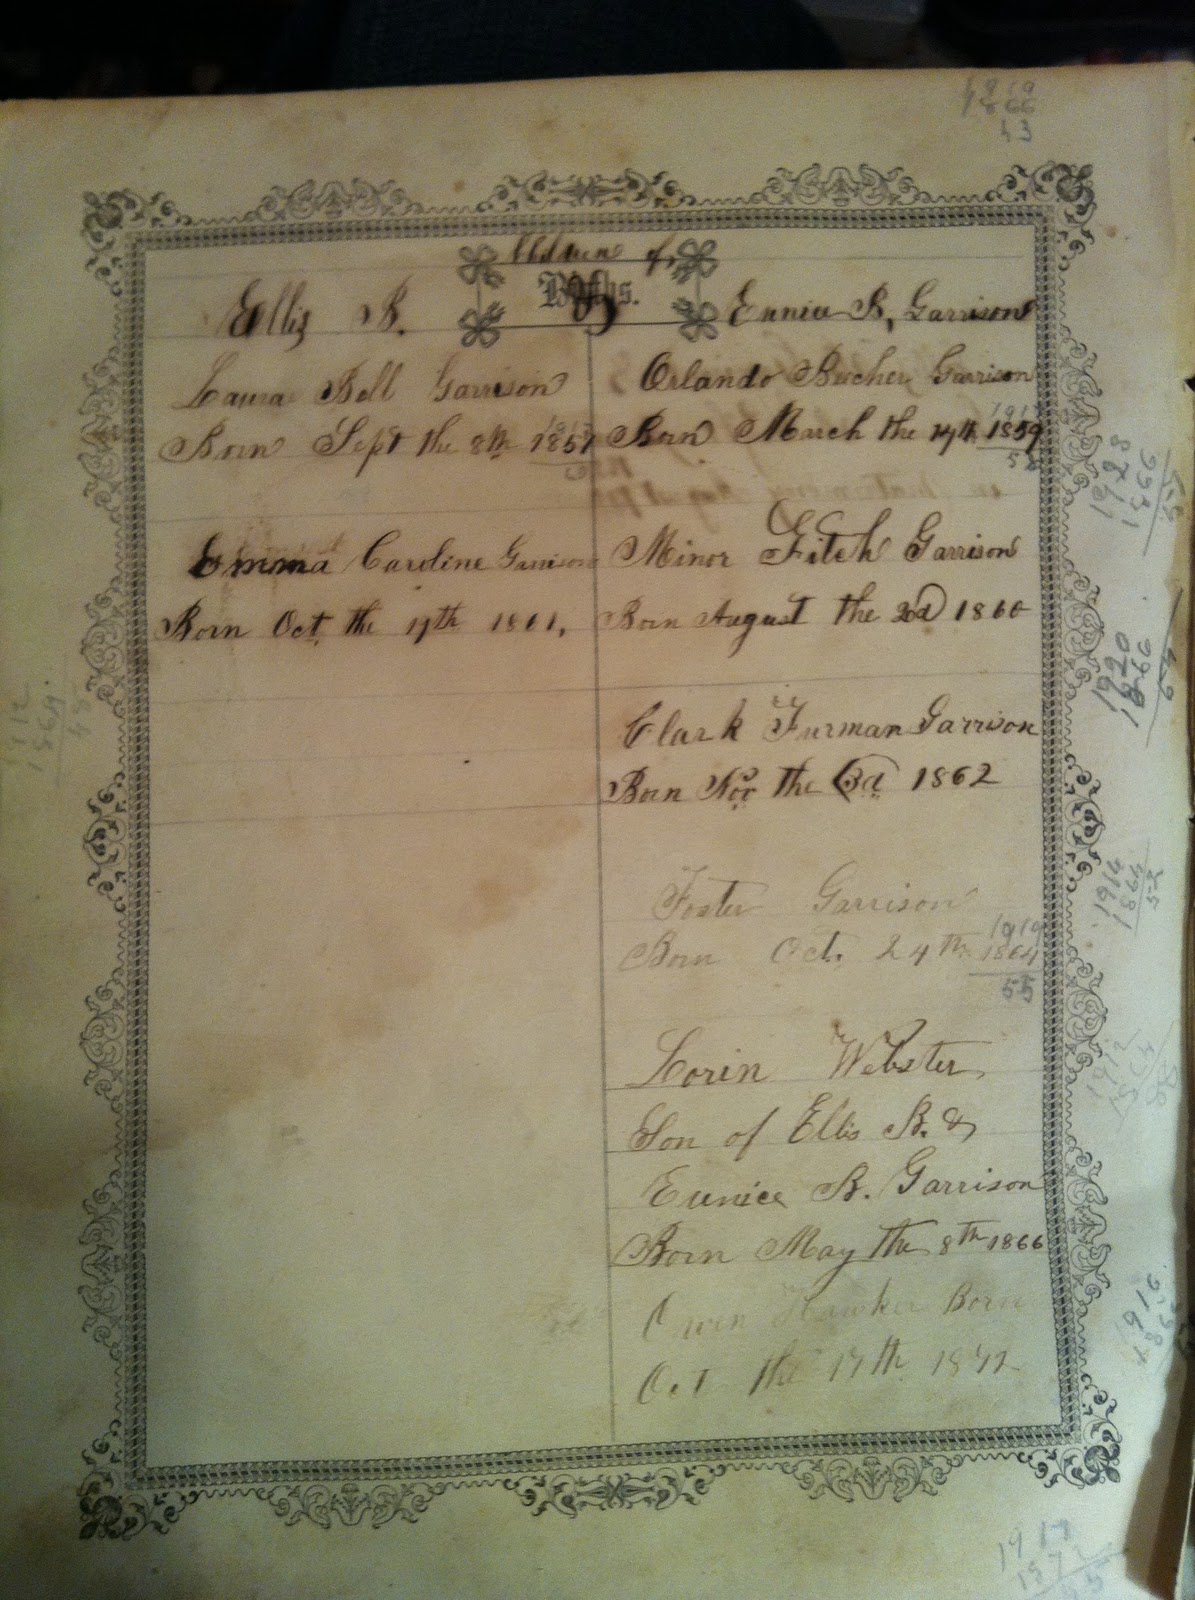 1919
1866
53
Children of,
Births.
Ellis B. & Eunice B, Garrison
Laura Bell Garrison
Born Sept the 8th 1857
Emma Caroline Garrison
Born Oct. the 17th 1861,
Orlando Bucher Garrison
Born March the 14th 1859
58
Minor Fitch Garrison
Born August the 2d 1860
Clark Furman Garrison
Born Nov the 3d 1862
Foster Garrison
1919
Born Oct. 24th 1864
55
Lorin Webster
Son of Ellis B. &
Eunice B. Garrison
Born May the 8th 1866
Owen Hawker Born
Oct the 17th 1872
1920
1866
1914
1864
1916
1917
1872